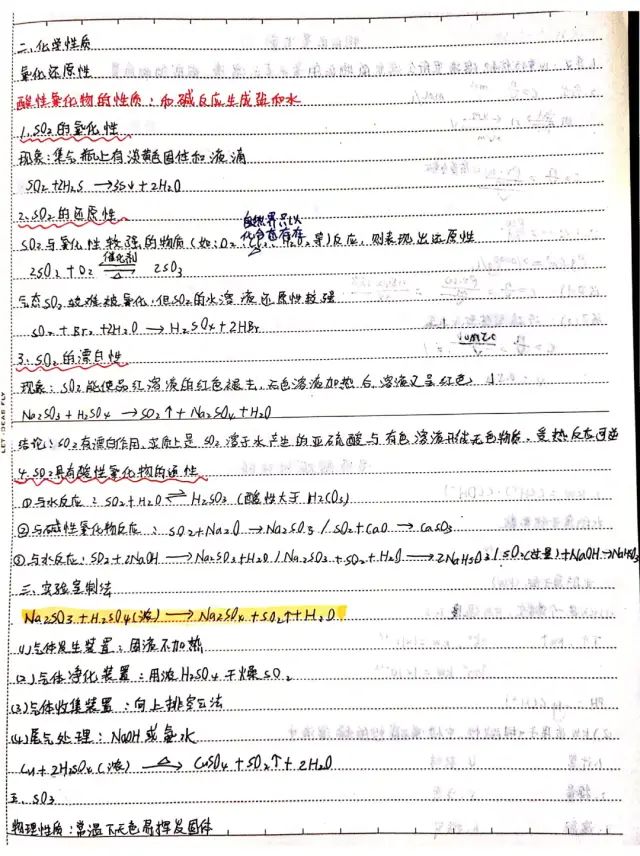 二、化学性质
氧化还原性
酸性氧化物的性质：和碱反应生成盐和水
1.SO₂的氧化性
现象：集气瓶上有淡黄色固体和液滴
SO₂+2H₂S →3S↓+2H₂O
2.SO₂的还原性
自然界只以
化合态存在
SO₂与氧化性较强的物质(如：O₂、Cl₂、H₂O₂等)反应，则表现出还原性
2SO₂+O₂ 催化剂 △ 2SO₃
气态SO₂较难被氧化，但SO₂的水溶液还原性较强
SO₂+Br₂+2H₂O → H₂SO₄+2HBr
3.SO₂的漂白性
现象：SO₂能使品红溶液的红色褪去，无色溶液加热后，溶液又呈红色
Na₂SO₃+H₂SO₄ →SO₂↑+Na₂SO₄+H₂O
结论：SO₂有漂白作用，实质上是SO₂溶于水产生的亚硫酸与有色溶液形成无色物质，受热反应可逆
4.SO₂具有酸性氧化物的通性
①与水反应：SO₂+H₂O⇌H₂SO₃(酸性大于H₂CO₃)
②与碱性氧化物反应：SO₂+Na₂O→Na₂SO₃/SO₂+CaO→CaSO₃
③与水反应：SO₂+2NaOH→Na₂SO₃+H₂O/Na₂SO₃+SO₂+H₂O→2NaHSO₃/SO₂(过量)+NaOH→NaHSO₃
三、实验室制法
Na₂SO₃+H₂SO₄(浓)→Na₂SO₄+SO₂↑+H₂O
(1)气体发生装置：固液不加热
(2)气体净化装置：用浓H₂SO₄干燥SO₂
(3)气体收集装置：向上排空法
(4)尾气处理：NaOH或氨水
Cu+2H₂SO₄(浓) △→ CuSO₄+SO₂↑+2H₂O
五、SO₃
物理性质：常温下无色易挥发固体
LET IDEAS FLY